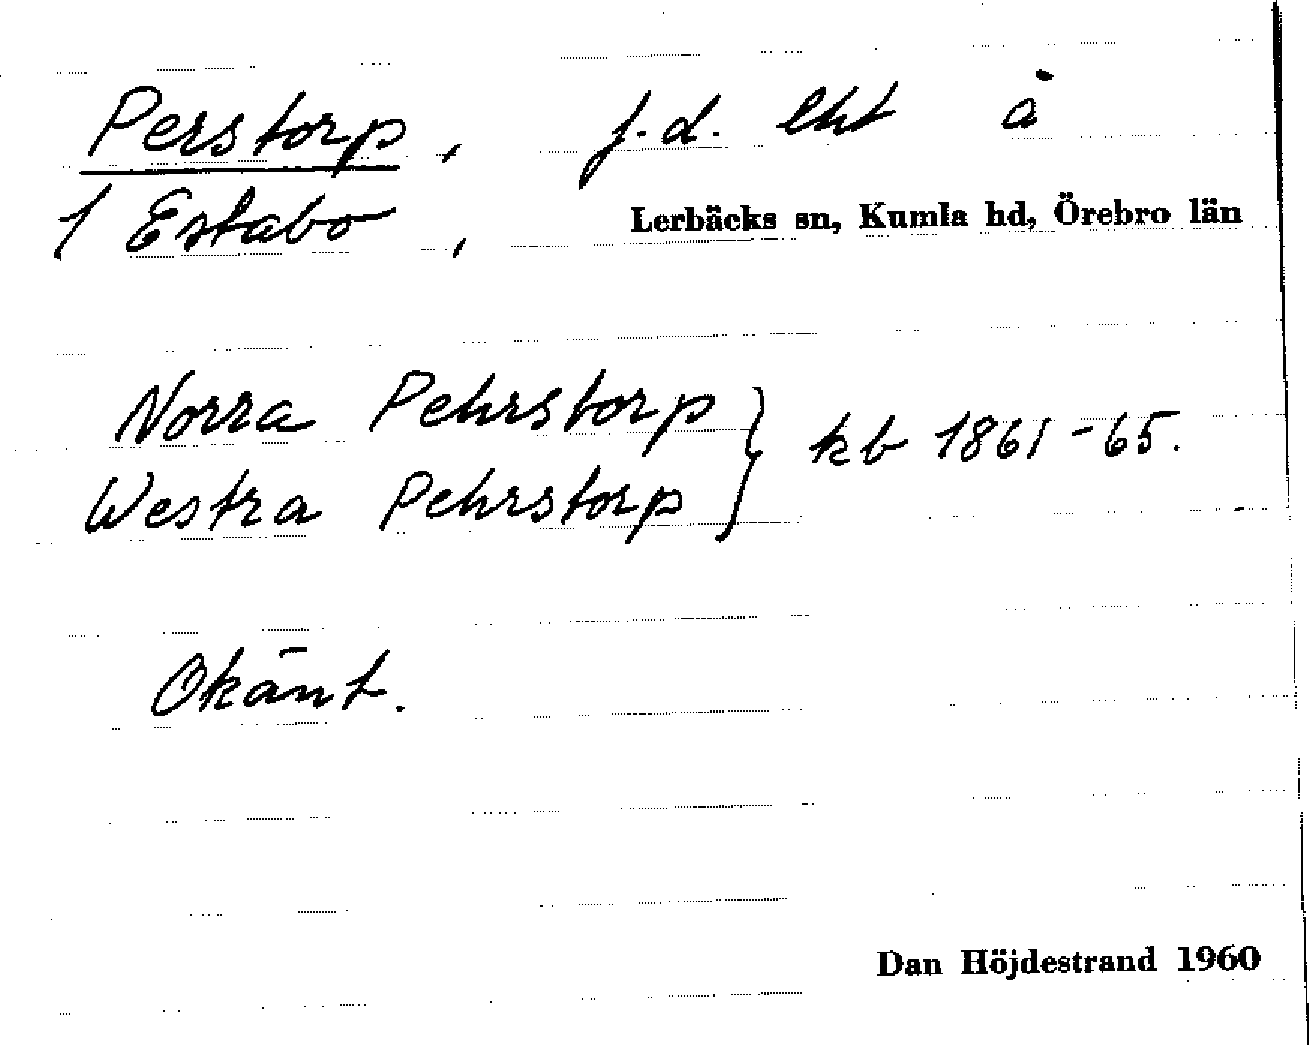 Perstorp, f.d. lht å
1 Estabo, Lerbäcks sn, Kumla hd, Örebro län
Norra Pehrstorp } kb 1861-65.
Westra Pehrstorp
Okänt.
Dan Höjdestrand 1960